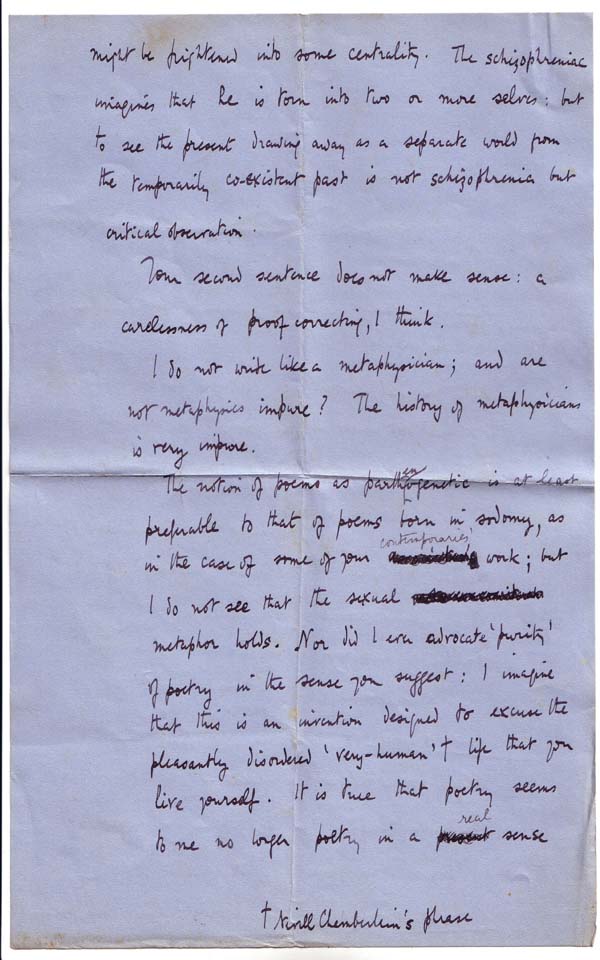 might be frightened into some centrality. The schizophreniac
imagines that he is torn into two or more selves: but
to see the present drawing away as a separate world from
the temporarily co-existent past is not schizophrenia but
critical observation.
Your second sentence does not make sense: a
carelessness of proof correcting, I think.
I do not write like a metaphysician; and are
not metaphysics impure? The history of metaphysicians
is very impure.
The notion of poems as parthenogenetic is at least
preferable to that of poems born in sodomy, as
in the case of some of your contemporaries' work; but
I do not see that the sexual
metaphor holds. Nor did I ever advocate 'purity'
of poetry in the sense you suggest: I imagine
that this is an invention designed to excuse the
pleasantly disordered 'very-human' † life that you
live yourself. It is true that poetry seems
to me no longer poetry in a real sense
† Nevill Chamberlein's phrase